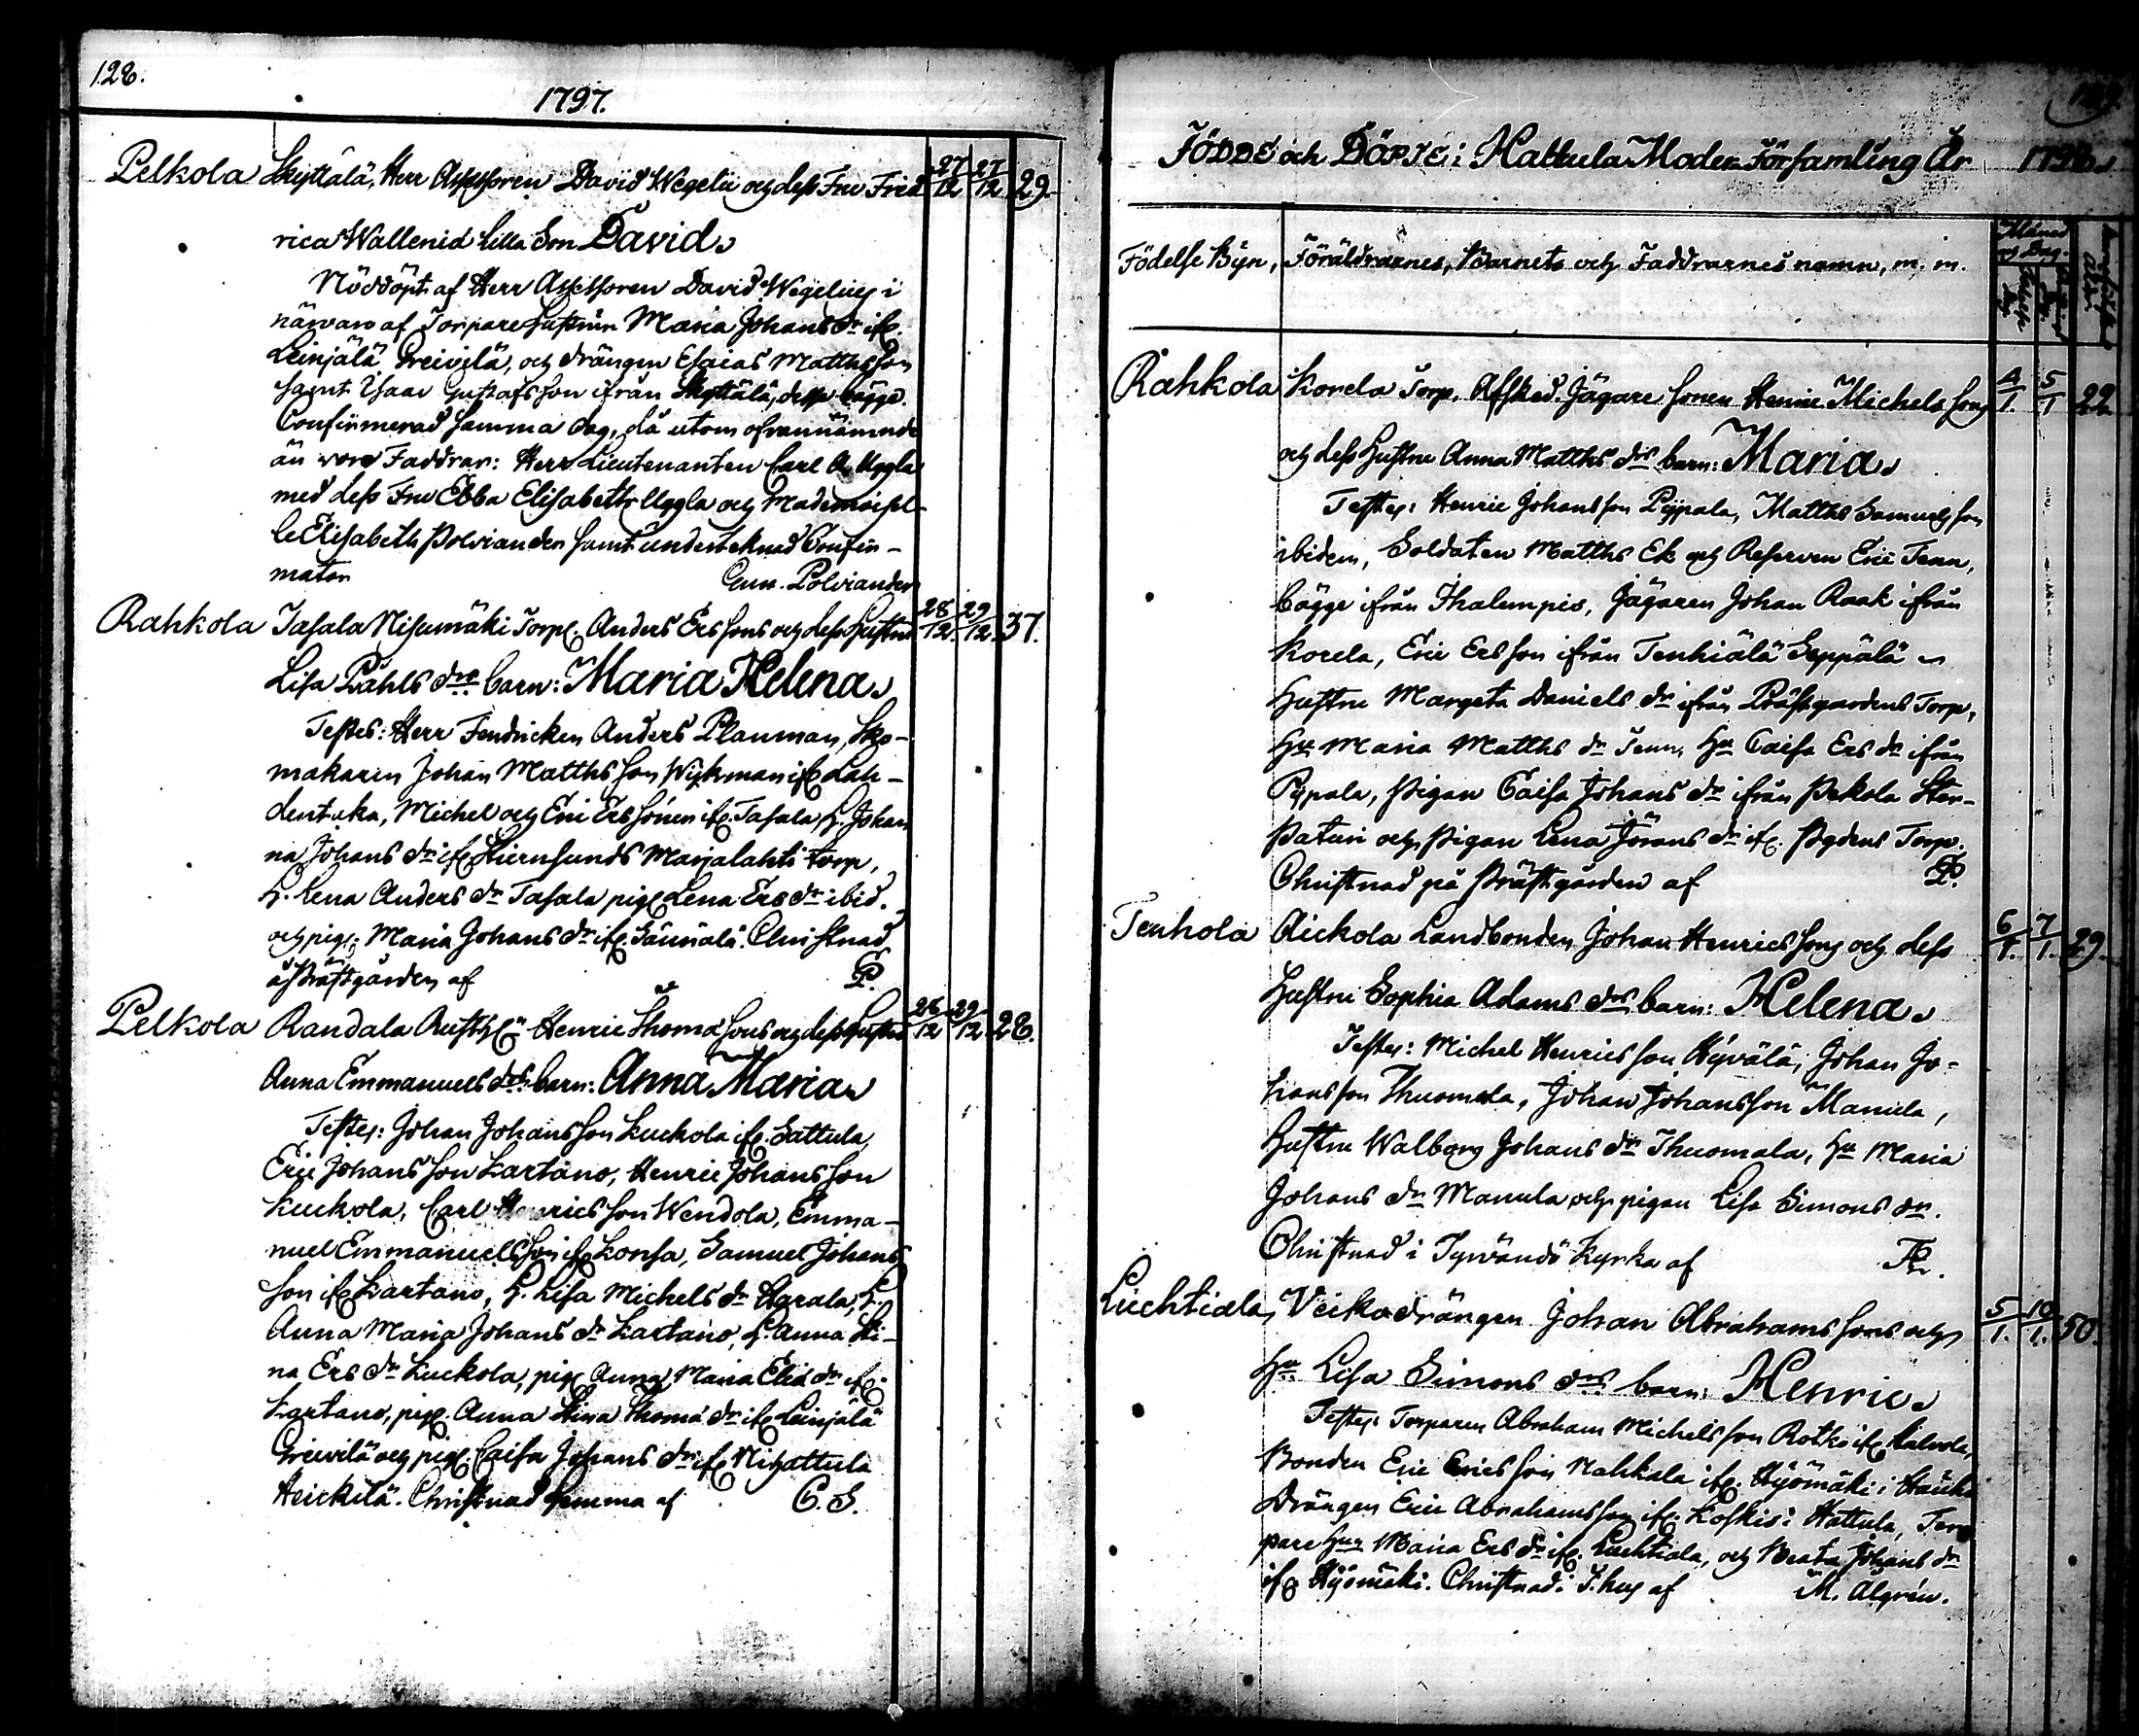 128.
1797.
Pelkola Skyttälä, Herr Assessoren David Wegelii och dess Fru Fred 27/12 27/12 29.
rica Wallenid lilla Son David.
Nöddöpt af Herr Assessoren David Wegelius i
närwaro af Torpare hustrun Maria Johans dr ifr.
Leinjälä Preivilä, och drängen Esaias Matthsson
samt Isaac Gustafsson ifrån Skyttälä, desse bägge.
Confirmerad samma dag, då utom ofvannämnde
än voro Faddrar: Herr Lieutenanten Carl A. Uggla
med dess Fru Ebba Elisabeth Uggla och Mademoisel-
le Elisabeth Polviander samt underteknad Confir-
mator Polviander
Rahkola Tasala Nisumäki Torp. Anders Ers sons och dess Hustru 28/12 29/12 37.
Lisa Påhls drs barn: Maria Helena.
Testes: Herr Fendricken Anders Plauman, Sko-
makaren Johan Matths son Wijkman ifr Lah-
dentaka, Michel och Eric Ers söner ifr. Tasala, H. Johan
na Johans dr ifr Stiernsunds Marjalahti torp,
H. Lena Anders dr Tasala pig. Lena Ers dr ibid.
och pig. Maria Johans dr ifr. Christnad
å Prästgården af P.
Pelkola Randala Rusth. Henric Thomæ sons och dess Hustru 28/12 29/12 28.
Anna Emmanuels drs barn: Anna Maria.
Testes: Johan Johansson Kuckola ifr. Sattula,
Eric Johans son Kartano, Henric Johansson
Kuckola, Carl Henrics son Wendola, Emma-
nuel Emmanuels son ifr Konsa, Samuel Johans
son ifr Kartano, H. Lisa Michels dr Harala, H.
Anna Maria Johans dr Kartano, H. Anna Sti-
na Ers dr Kuckola, pig. Anna Maria Eliæ dr ifr
Kartano, pig. Anna Stina Thomæ dr ifr Leinjälä
Preivilä och pig. Caisa Johans dr ifr Nihattula
Heickilä. Christnad hemma af C. S.
FÖDDE och DÖPTE i Hattula Moder Församling År 1798.
Födelse Byn, Föräldrarnes, Barnets och Faddrarnes namn, m. m. Månad och Dag.
Rahkola Korela Torp. Afsked. Jägare sonen Henric Michels sons 4/1. 5/1 22
och dess Hustru Anna Matths drs barn: Maria.
Testes: Henric Johansson Pyypala, Matths Samuelsson
ibidem, Soldaten Matths Ek och Reserven Eric Tenn,
bägge ifrån Ihalempis, Jägaren Johan Raak ifrån
Korela, Eric Ersson ifrån Tenhiälä Seppälä
Hustru Margeta Daniels dr ifrån Prästgårdens Torp,
Hu Maria Matths dr Tenn, Hu Caisa Ers dr ifrån
Pypala, Pigan Caisa Johans dr ifrån Pekola Sten-
paturi och Pigan Lena Jörans dr ifr. Pgdens Torp.
Christnad på Prästgården af P.
Tenhola Aickola Landbonden Johan Henrics sons och dess 6/1. 7/1. 29.
Hustru Sophia Adams drs barn: Helena.
Testes: Michel Henrics son Hyvälä, Johan Jo-
hansson Thuomala, Johan Johansson Manula,
Hustru Walborg Johans dr Thuomala, Hu Maria
Johans dr Manula och pigan Lisa Simons dr.
Christnad i Tyrvändö Kyrka af
Luchtiala, Veiko drängen Johan Abrahams sons och 5/1. 10/1. 50.
Hu Lisa Simons drs barn: Henric.
Testes: Torparen Abraham Michelsson Rotko ifr. Kalvola,
Bonden Eric Ericsson Nahkala ifr. Hyömäki i Hauho
Drängen Eric Abrahamsson ifr. Koskis i Hattula, Tor
pare Hun Maria Ers dr ifr. Luchtiala, och Beata Johans dr
ifr Hyömäki. Christnad i S.hus af M. Algrén.